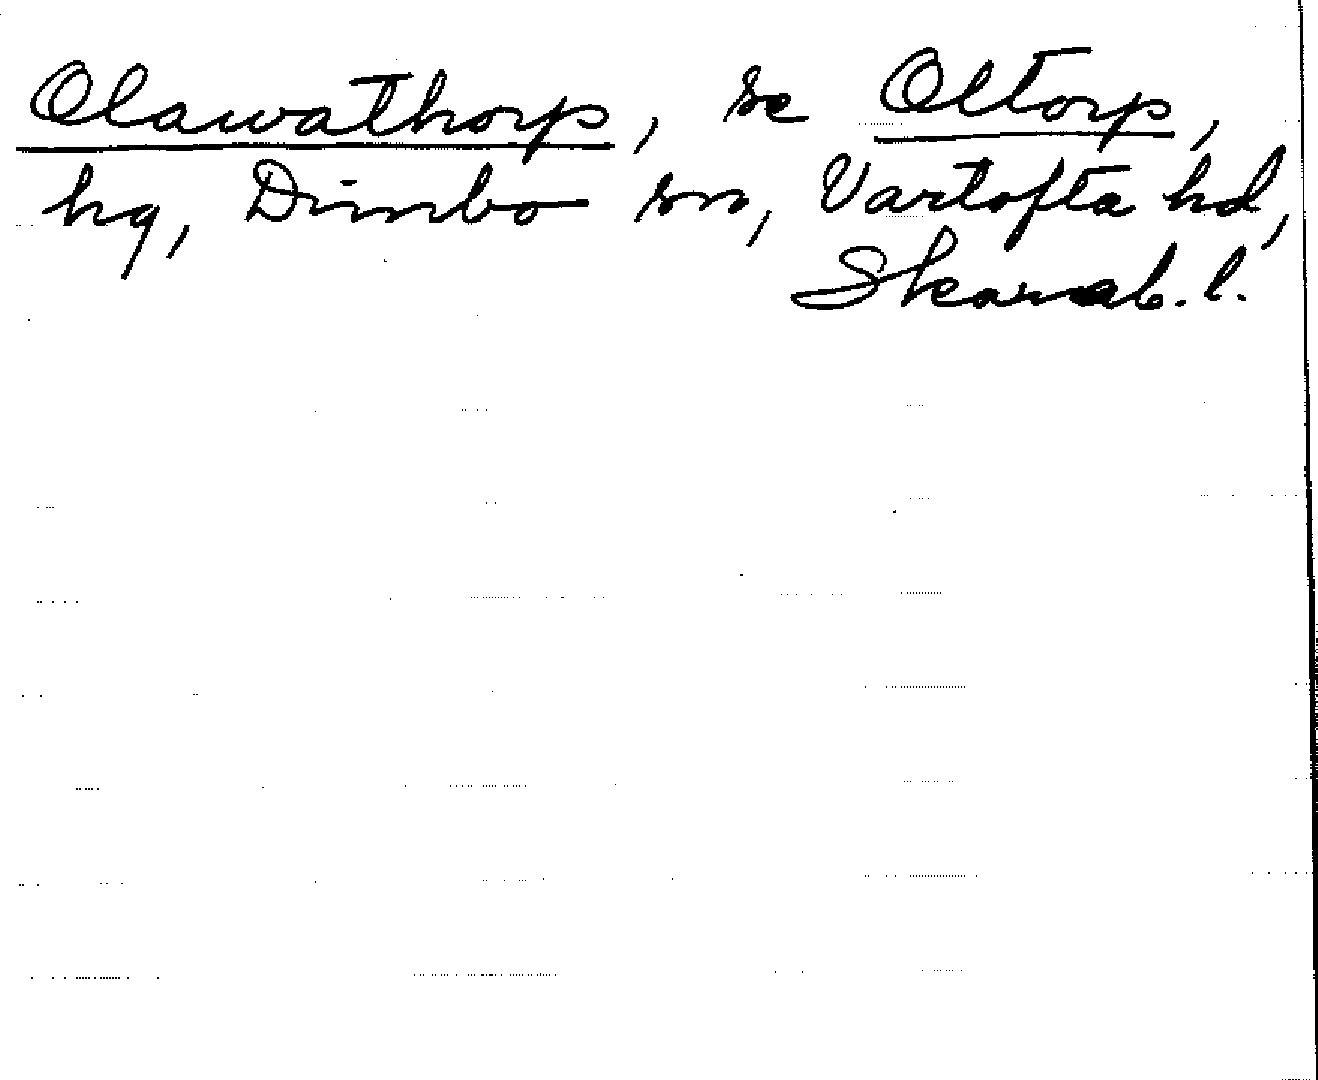 Olawathorp, se Oltorp,
hg, Dimbo sn, Vartofta hd,
Skarab. l.